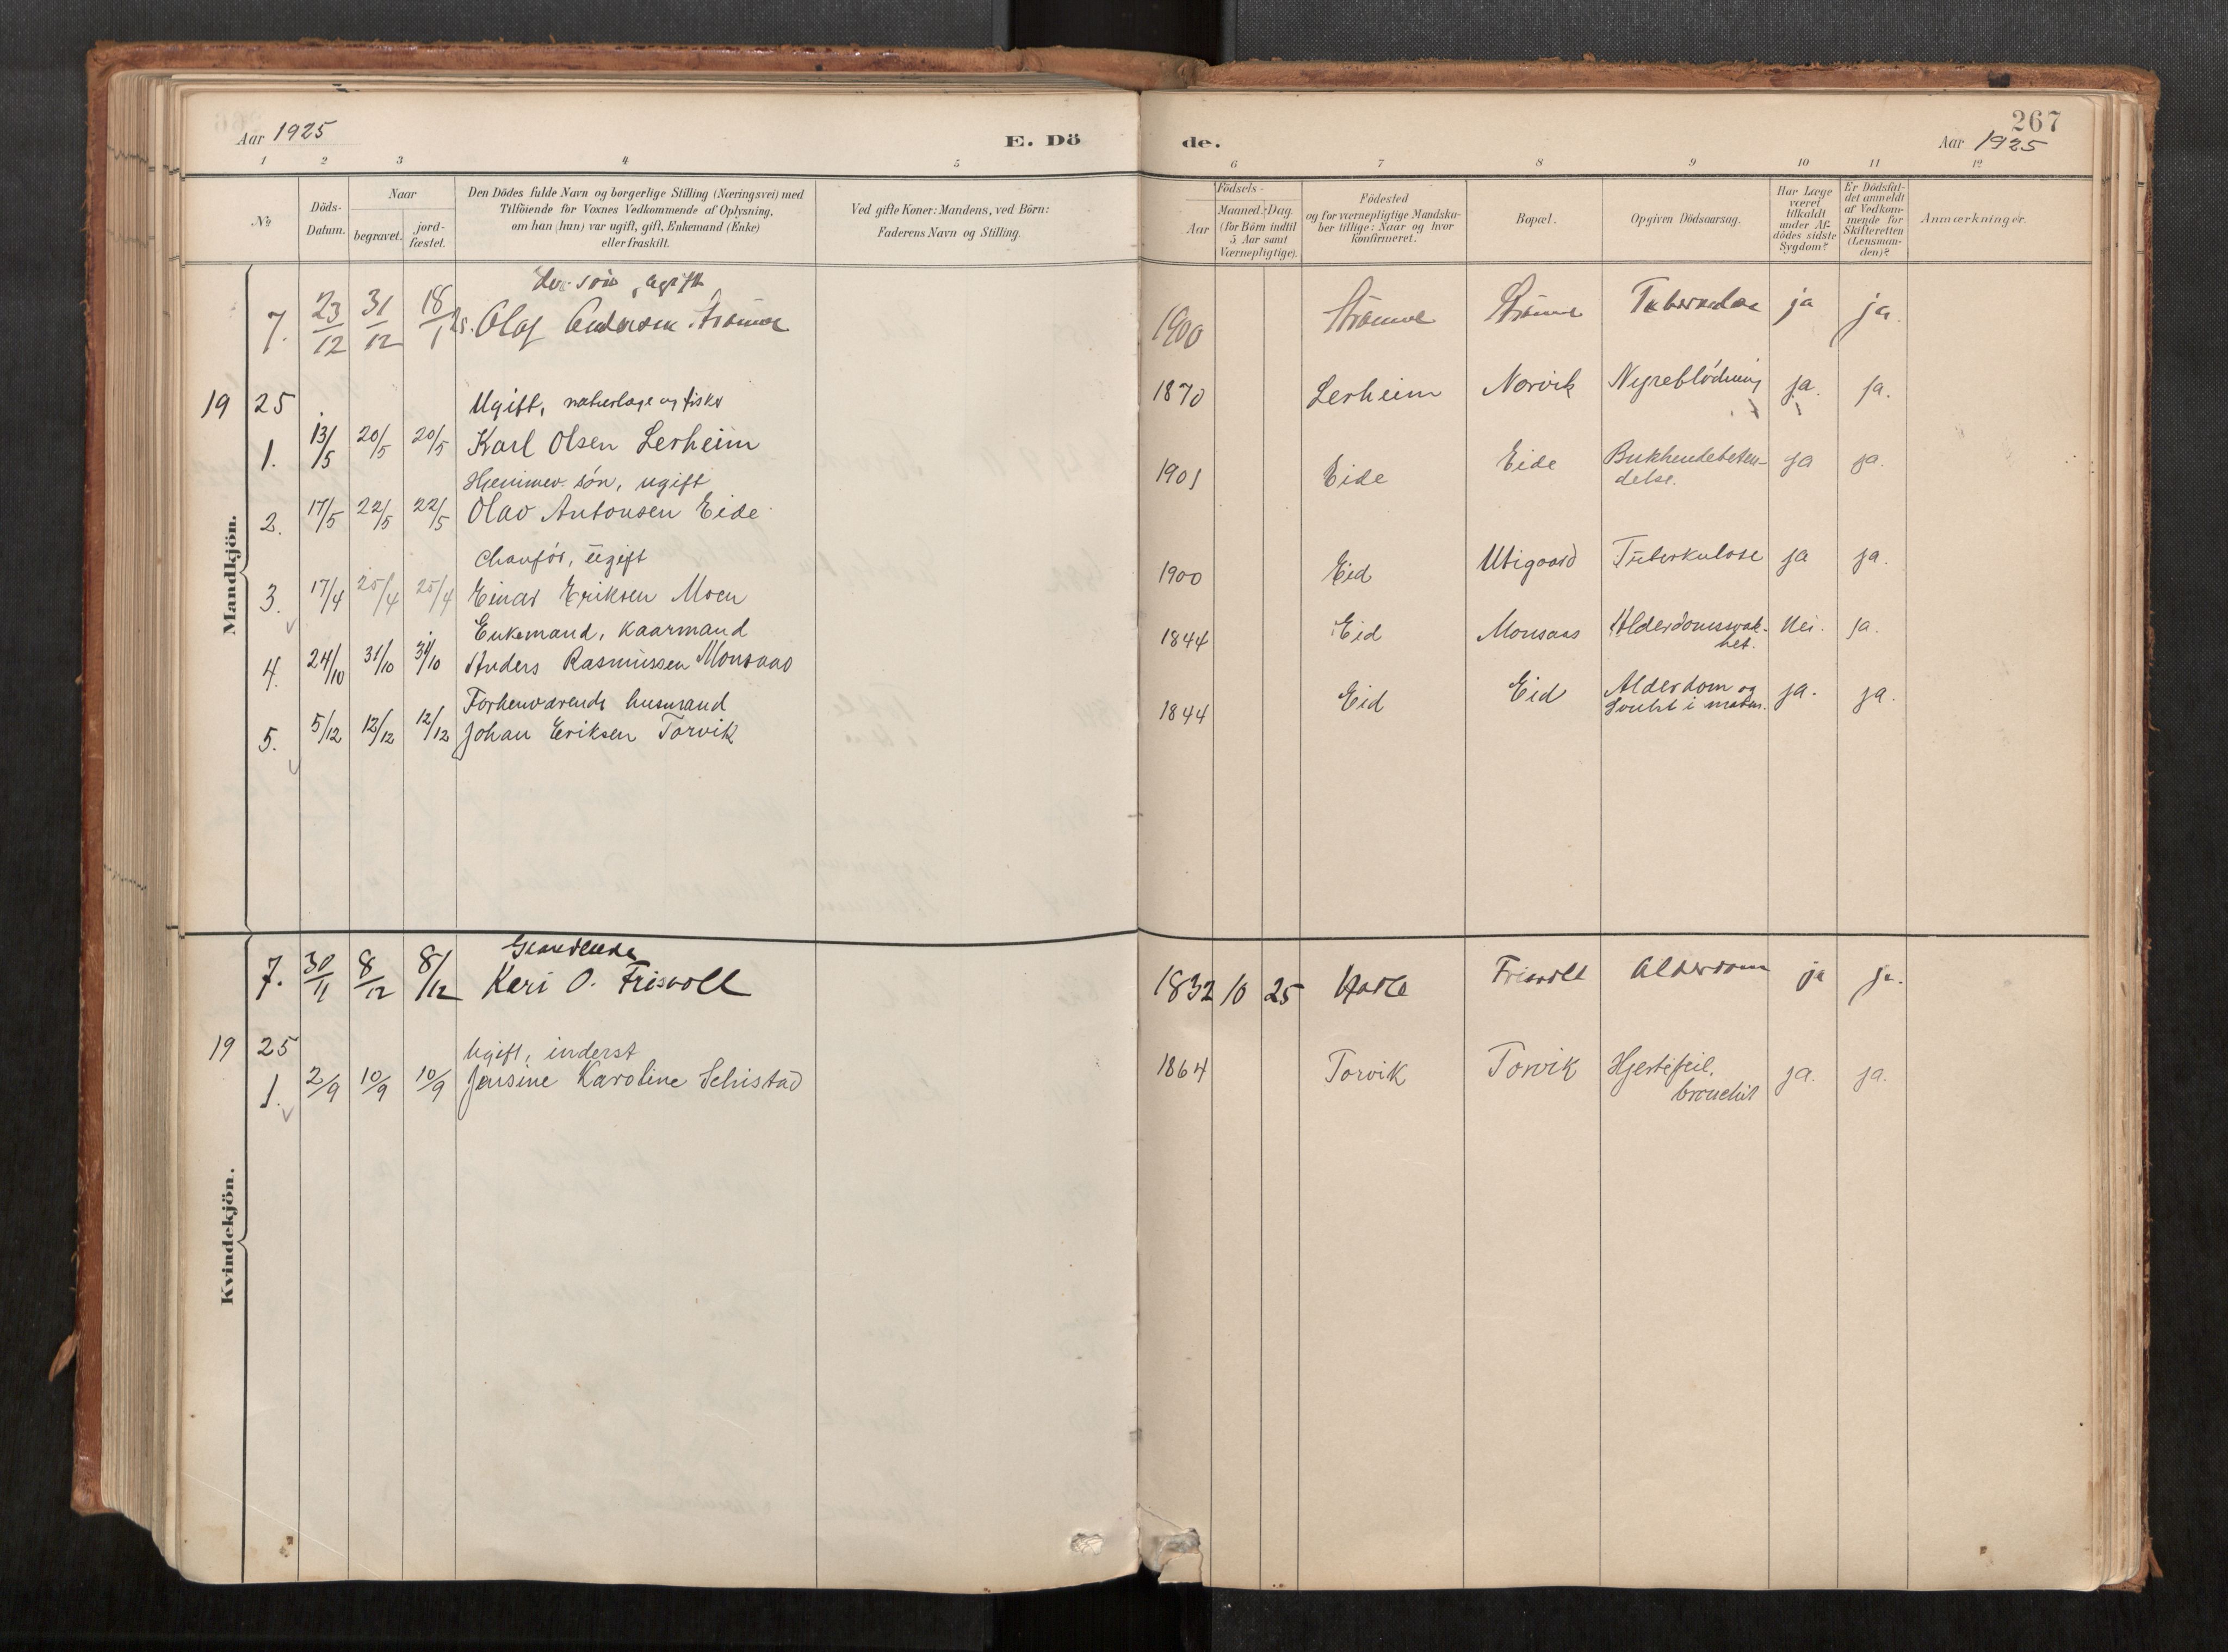 Aar 1925
E. Dö
de.
267
Aar 1925
1 2 3 4 5 6 7 8 9 10 11 12
No
Döds-
Datum.
Naar
begravet.
jord-
fæstet.
Den Dödes fulde Navn og borgerlige Stilling (Næringsvei) med
Tilföiende for Voxnes Vedkommende af Oplysning,
om han (hun) var ugift, gift, Enkemand (Enke)
eller fraskilt.
Ved gifte Koner: Mandens, ved Börn:
Faderens Navn og Stilling.
Födsels-
Aar
Maaned. Dag
(for Börn indtil
5 Aar samt
Værnepligtige).
Födested
og for værnepligtige Mandska-
ber tillige: Naar og hvor
konfirmeret.
Bopæl.
Opgiven Dödsaarsag.
Har Læge
været
tilkaldt
under Af-
dödes sidste
Sygdom?
Er Dödsfal-
det anmeldt
af Vedkom-
mende for
Skifteretten
(Lensman-
den)?
Anmærkninger.
Mandkjön.
søn, ugift
7. 23/12 31/12 18/1 25. Olaf Andersen Strømme 1900 Strømme Strømme Tuberkulose ja ja.
19 25
Ugift, og fisker
1. 13/5 20/5 20/5 Karl Olsen Lerheim 1870 Lerheim Norvik Nyreblødning ja. ja.
Hjemmev. søn, ugift
2. 17/5 22/5 22/5 Olav Antonsen Eide 1901 Eide Eide Bukhendebeten-
delse. ja ja.
Chaufør, ugift
3. 17/4 25/4 25/4 Einar Eriksen Moen 1900 Eid Utigaard Tuberkulose ja ja.
Enkemand, kaarmand
4. 24/10 31/10 31/10 Anders Rasmussen Monsaas 1844 Eid Monsaas Alderdomssvak-
het. Nei. ja.
Forhenværende husmand
5. 5/12 12/12 12/12 Johan Eriksen Torvik 1844 Eid Eid Alderdom og
i maven. ja. ja.
Kvindekjön.
7. 30/11 8/12 8/12 Kari O. Frisvoll 1832 10 25 Frisvoll Alderdom ja ja.
19 25
Ugift, inderst
1. 2/9 10/9 10/9 Jensine Karoline Schistad 1864 Torvik Torvik Hjertefeil,
bronchit ja. ja.